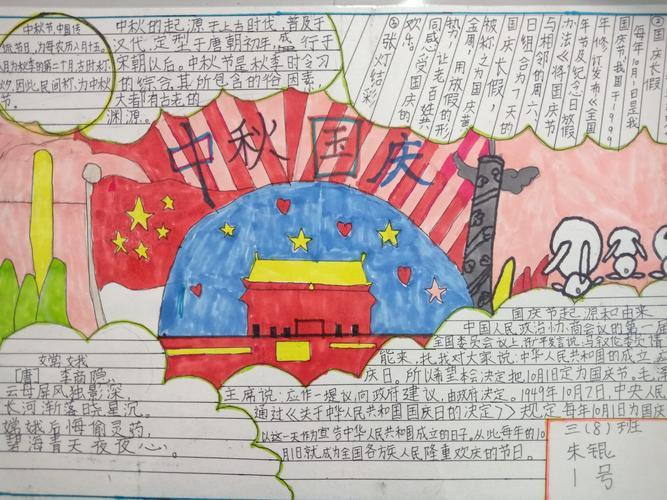 中秋节,中国传
统节日,为每农历八月十五,
八月为秋季的第二个月,古时称
夕,因此,民间称,为中秋
节。
中秋的起源于上古时代,普及于
汉代,定型于唐朝初年,盛行于
宋朝以后。中秋节是秋季时令习
的综合,其所包含的俗因素,
大都有古老的
渊源。
国庆长假
每年10月1日是我
国庆节,我国于1999
年修订发布《全国
年节及纪念日放假
办法》将国庆节
与相邻的周六、
日组合为7天的
国庆长假,
被称之为国庆黄
金周,用放假的形
势,让老百姓共
同感受国庆的
张灯结彩
中秋国庆
[唐] 李商隐
云母屏风独影深,
长河渐落晓星沉。
嫦娥后悔偷灵药,
碧海青天夜夜心。
国庆节起源和由来
中国人民政治协商会议的第一
全国委员会议上,许广平发言说,马叙伦委员请
能来,托我对大家说:中华人民共和国的成立
庆日。所以希望本会决定把10月1日定为国庆节,毛泽
主席说:应作一提议,向政府建议,由政府决定。1949年10月2日,中央人
通过《关于中华人民共和国国庆日的决定》规定每年10月1日为国庆
以这一天作为宣告中华人民共和国成立的日子。从此,每年的10
月1日就成为全国各族人民隆重欢庆的节日。
三(8)班
朱锟
1号